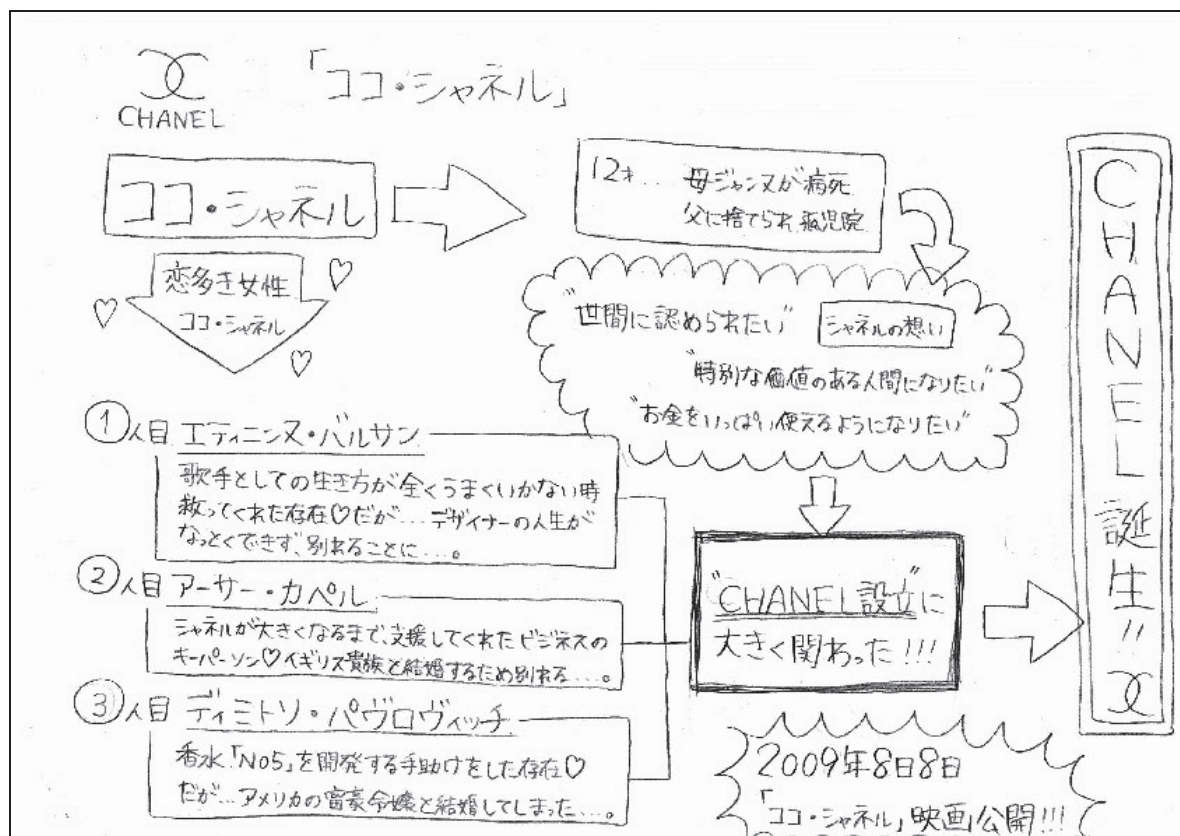 CHANEL
「ココ・シャネル」
ココ・シャネル
12才... 母ジャンヌが病死
父に捨てられ、孤児院
恋多き女性
ココ・シャネル
"世間に認められたい"
シャネルの想い
"特別な価値のある人間になりたい"
"お金をいっぱい使えるようになりたい"
①人目 エティニンヌ・バルサン
歌手としての生き方が全くうまくいかない時
救ってくれた存在♡だが... デザイナーの人生が
なっとくできず、別れることに....。
②人目 アーサー・カペル
シャネルが大きくなるまで、支援してくれたビジネスの
キーパーソン♡イギリス貴族と結婚するため別れる....。
③人目 ディミトソ・パヴロヴィッチ
香水「No5」を開発する手助けをした存在♡
だが...アメリカの富豪令嬢と結婚してしまった....。
"CHANEL設立"に
大きく関わった!!!
CHANEL誕生!!
2009年8日8日
「ココ・シャネル」映画公開!!!